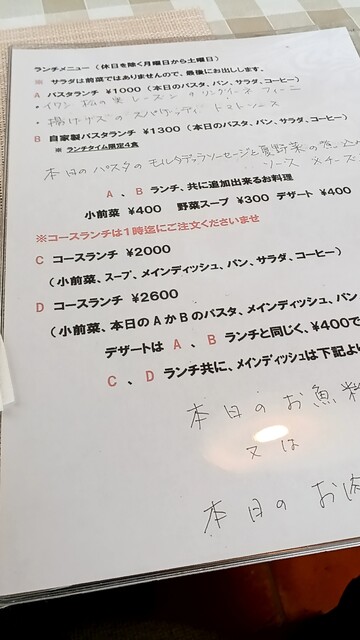 ランチメニュー (休日を除く月曜日から土曜日)
※ サラダは前菜ではありませんので、最後にお出しします。
A パスタランチ ¥1000 (本日のパスタ、パン、サラダ、コーヒー)
・イワシ 松の実 レーズン の リングイーネ フィーニ
・揚げナスの スパゲッティ トマトソース
B 自家製パスタランチ ¥1300 (本日のパスタ、パン、サラダ、コーヒー)
※ ランチタイム限定4食
本日のパスタの モルタデッラソーセージと夏野菜の煮込み
ソース チーズ
A 、 B ランチ、共に追加出来るお料理
小前菜 ¥400 野菜スープ ¥300 デザート ¥400
※コースランチは1時迄にご注文くださいませ
C コースランチ ¥2000
(小前菜、スープ、メインディッシュ、パン、サラダ、コーヒー)
D コースランチ ¥2600
(小前菜、本日のAかBのパスタ、メインディッシュ、パン
デザートは A 、 B ランチと同じく、¥400で
C 、 D ランチ共に、メインディッシュは下記より
本日のお魚料
又は
本日の お肉